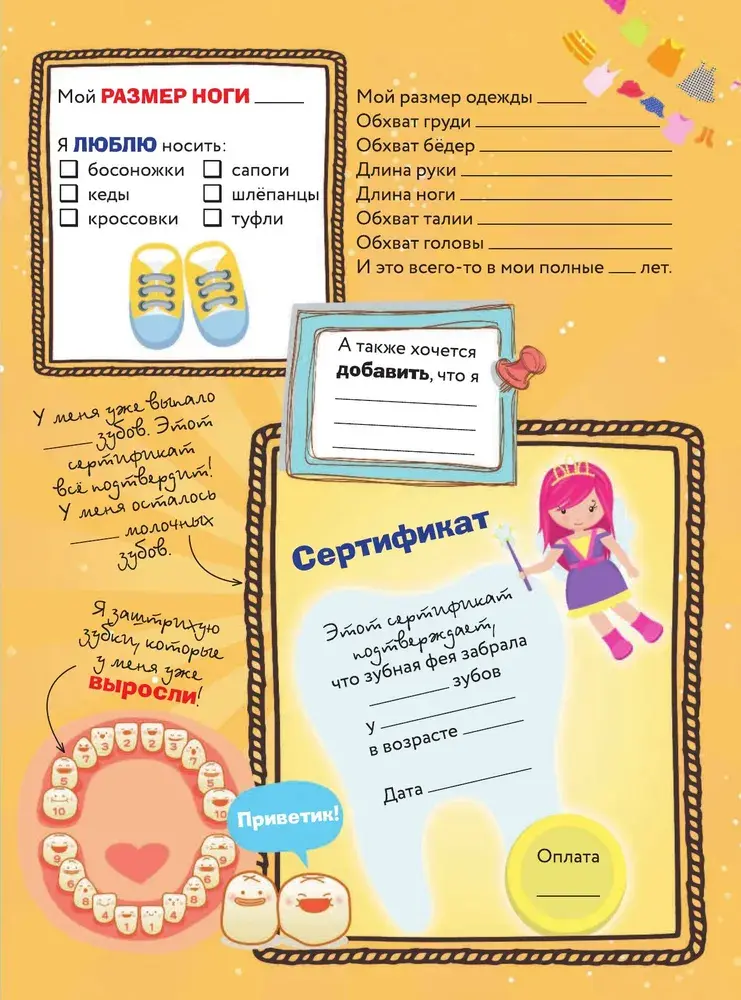 Мой РАЗМЕР НОГИ _____
Я ЛЮБЛЮ носить:
босоножки
кеды
кроссовки
сапоги
шлёпанцы
туфли
Мой размер одежды _____
Обхват груди _____
Обхват бёдер _____
Длина руки _____
Длина ноги _____
Обхват талии _____
Обхват головы _____
И это всего-то в мои полные ___ лет.
А также хочется
добавить, что я
_____
_____
_____
У меня уже выпало
_____ зубов. Этот
сертификат
всё подтвердит!
У меня осталось
_____ молочных
зубов.
Я заштрихую
зубки, которые
у меня уже
выросли!
Сертификат
Этот сертификат
подтверждает,
что зубная фея забрала
_____ зубов
у _____
в возрасте _____
Дата _____
Оплата
_____
5 7 3 2 2 3 7 5
10 10
9 9
6 8 4 1 1 4 8 6
Приветик!